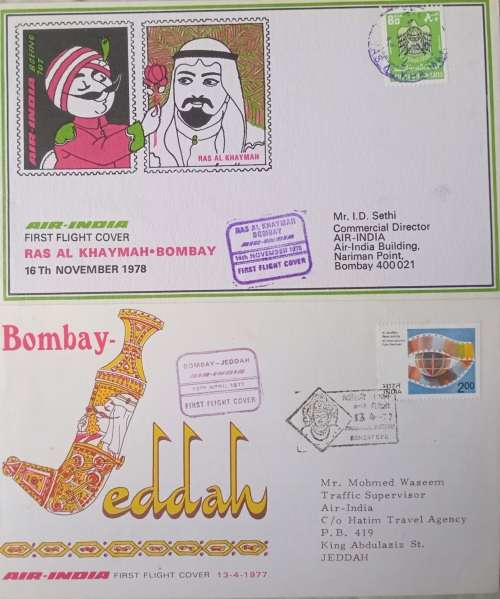 AIR-INDIA
BOEING 707
RAS AL KHAYMAH
AIR-INDIA
FIRST FLIGHT COVER
RAS AL KHAYMAH•BOMBAY
16 Th NOVEMBER 1978
RAS AL KHAYMAH
BOMBAY
AIR-INDIA
16th NOVEMBER 1978
FIRST FLIGHT COVER
Mr. I.D. Sethi
Commercial Director
AIR-INDIA
Air-India Building,
Nariman Point,
Bombay 400 021
Bombay-
Jeddah
BOMBAY-JEDDAH
AIR-INDIA
13TH APRIL 1977
FIRST FLIGHT COVER
13-4-77
भारत
INDIA
2.00
Mr. Mohmed Waseem
Traffic Supervisor
Air-India
C/o Hatim Travel Agency
P.B. 419
King Abdulaziz St.
JEDDAH
AIR-INDIA FIRST FLIGHT COVER 13-4-1977